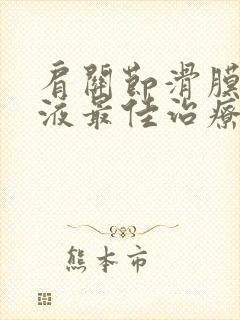 肩關節滑膜
液最佳治療
熊本市